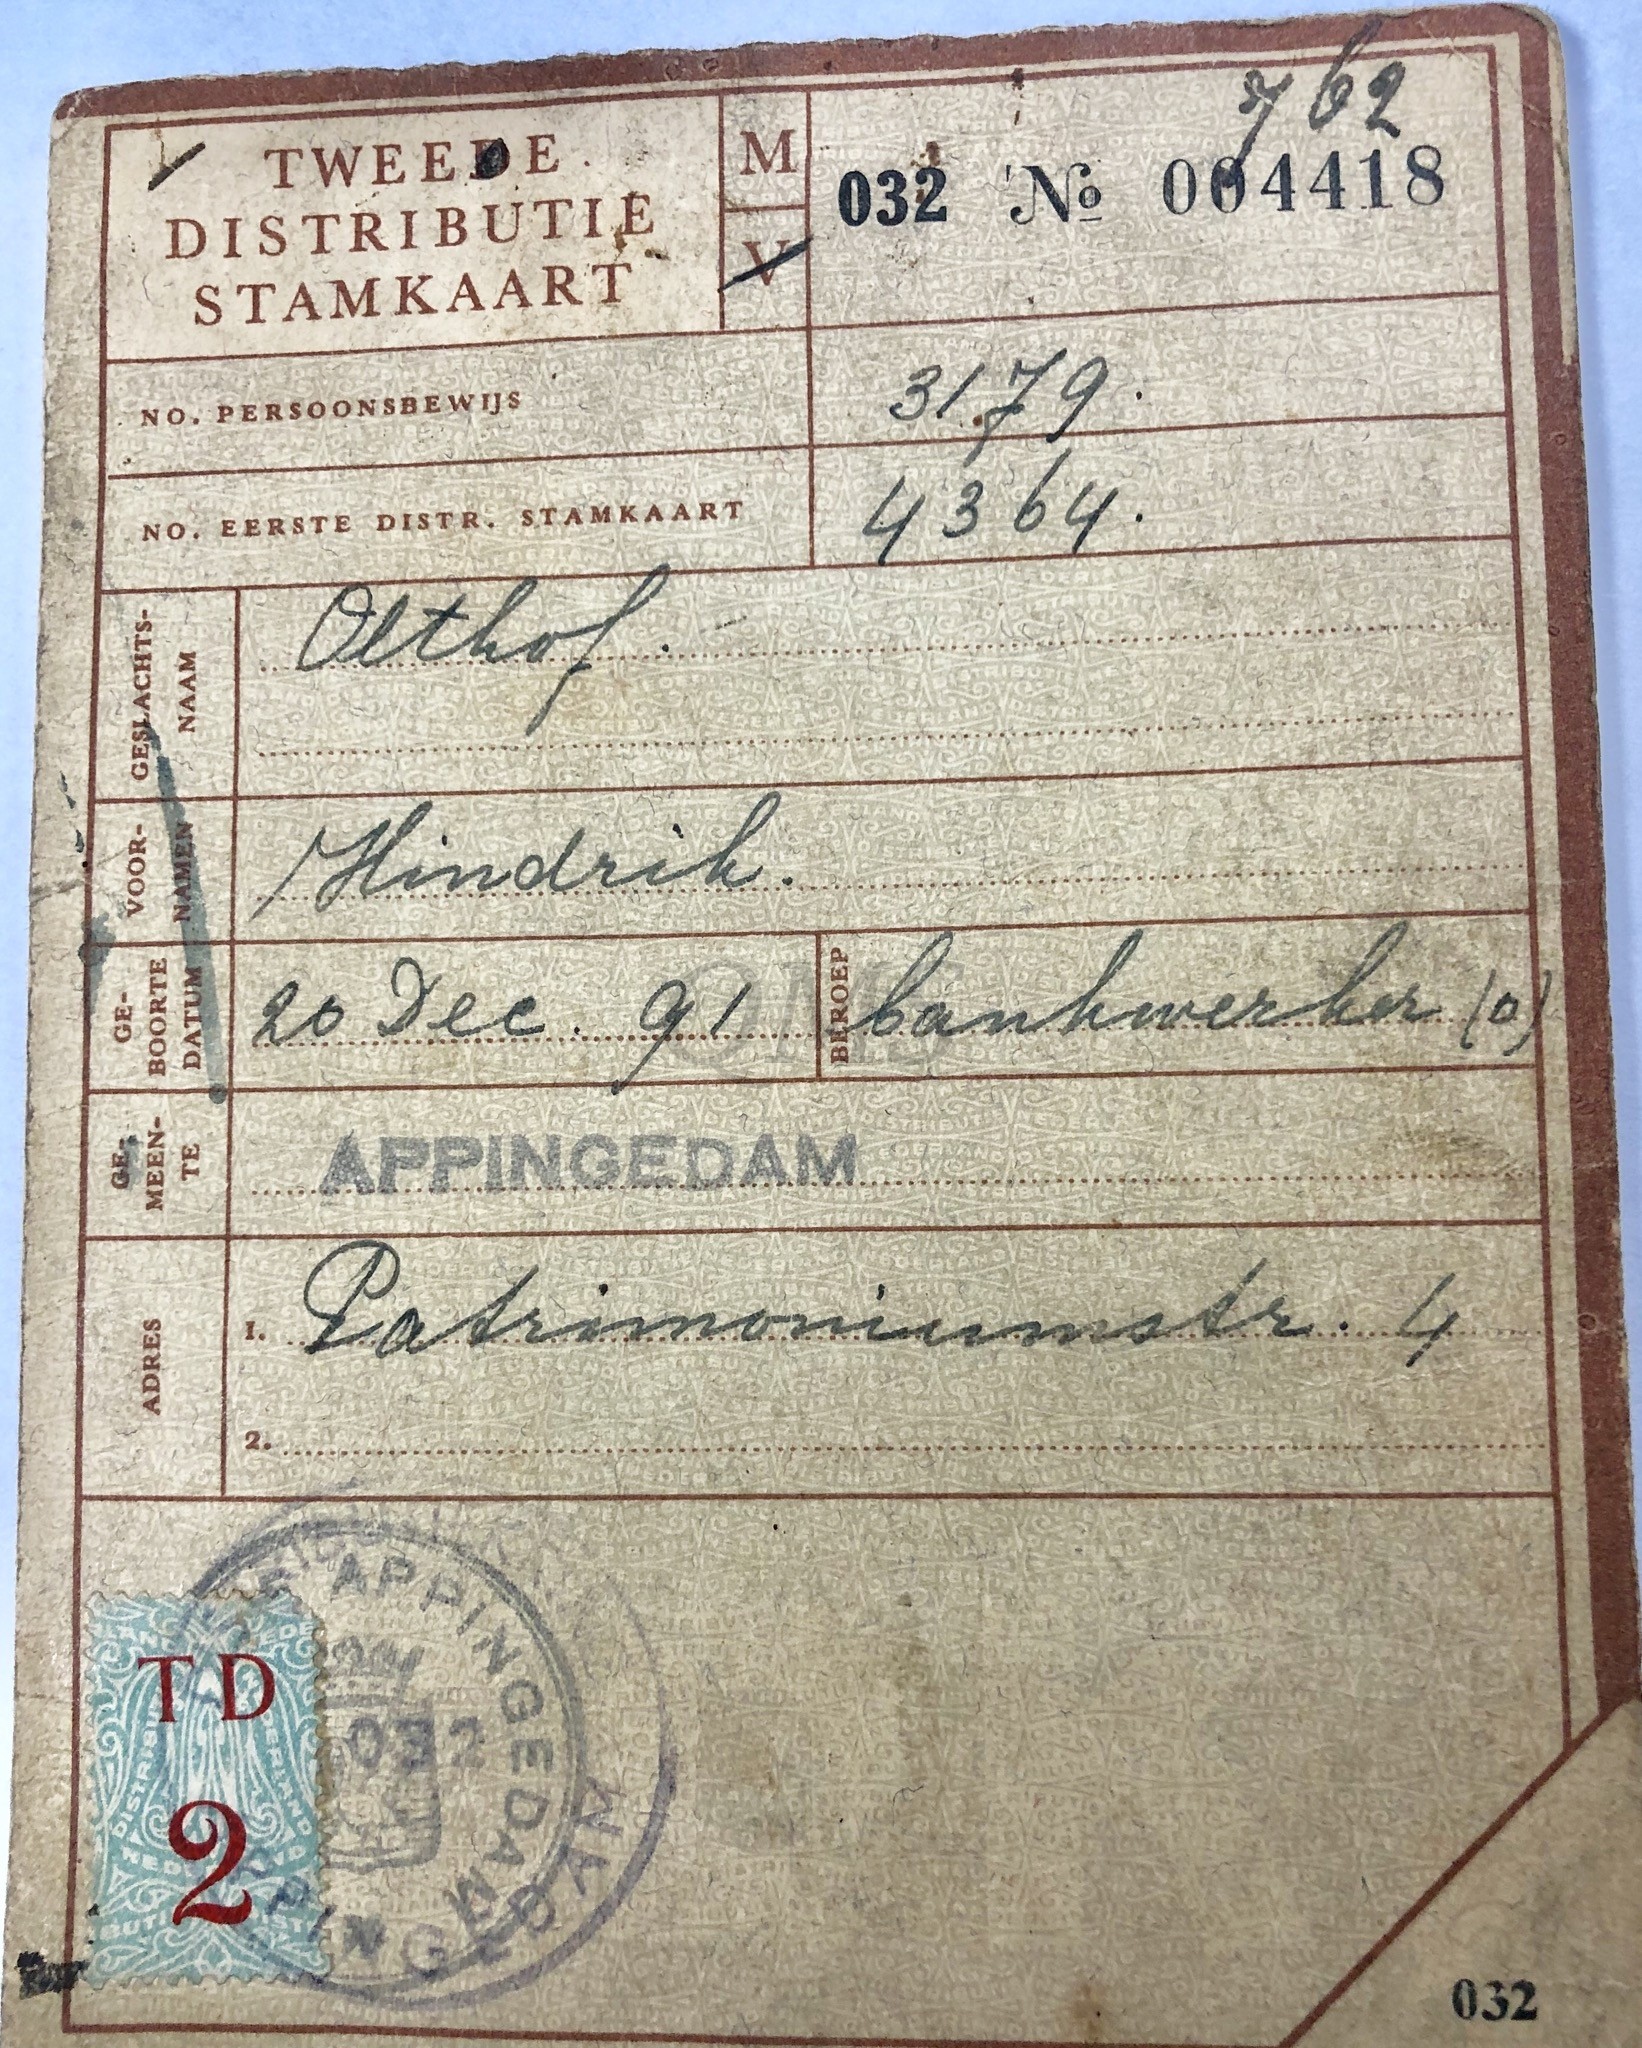 762
TWEEDE
DISTRIBUTIE
STAMKAART
M
V
032 No 004418
NO. PERSOONSBEWIJS 3179.
NO. EERSTE DISTR. STAMKAART 4364.
GESLACHTS-
NAAM
Olthof.
VOOR-
NAMEN
Hindrik.
GE-
BOORTE
DATUM
20 Dec. 91
BEROEP
bankwerker (o)
GE-
MEEN-
TE
APPINGEDAM
ADRES
1. Patrimoniumstr. 4
2.
TD
2
APPINGEDAM
032
APPINGEDAM
032